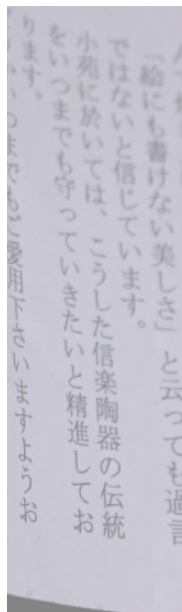 「絵にも書けない美しさ」と云っても過言
ではないと信じています。
小苑に於いては、こうした信楽陶器の伝統
をいつまでも守っていきたいと精進してお
ります。
いつまでもご愛用下さいますようお